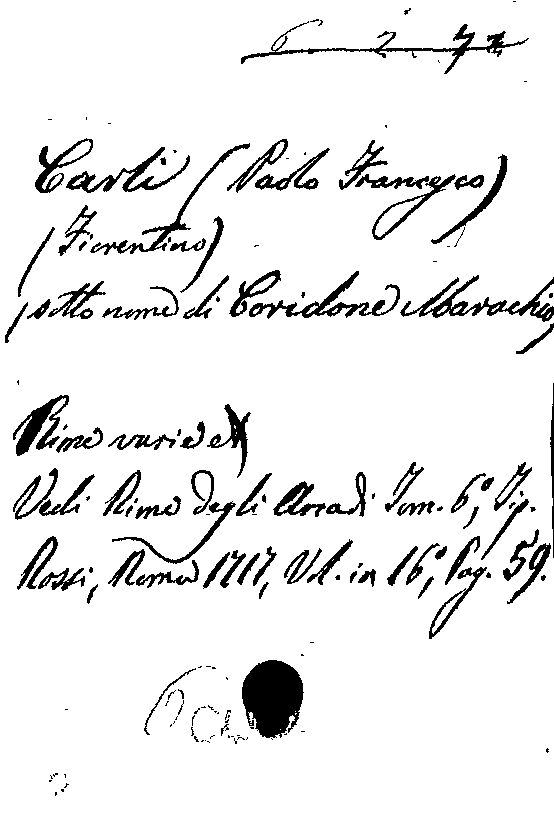 6. 2. 7
Carli (Paolo Francesco)
(Fiorentino)
(sotto nome di Coridone Marachio
Rime varie
Vedi Rime degli Arcadi Tom. 6°, Tip.
Rossi, Roma 1717, Vol. in 16°, Pag. 59.